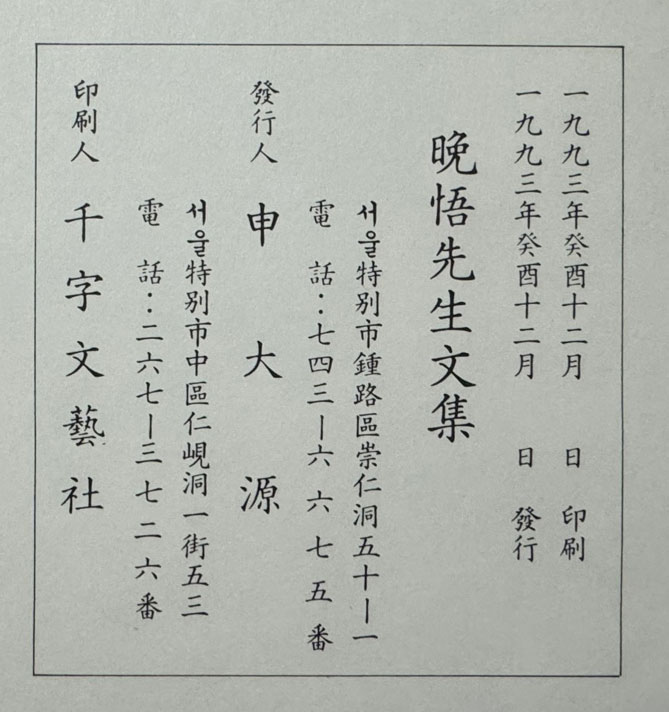 一九九三年癸酉十二月　日　印刷
一九九三年癸酉十二月　日　發行
晩悟先生文集
서울特別市鍾路區崇仁洞五十ー一
電　話：七四三ー六六七五番
發行人　申大源
서울特別市中區仁峴洞一街五三
電　話：二六七ー三七二六番
印刷人　千字文藝社